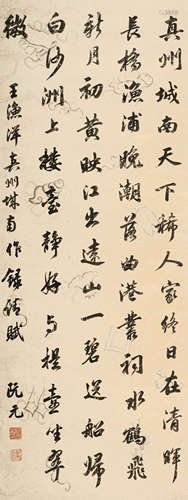 真州城南天下稀人家終日在清暉
長橋漁浦晚潮落曲港叢祠水鶴飛
新月初黄映江出遠山一碧送船歸
白沙洲上樓臺靜好与提壺坐翠
微
王漁洋真州城南作録
阮元